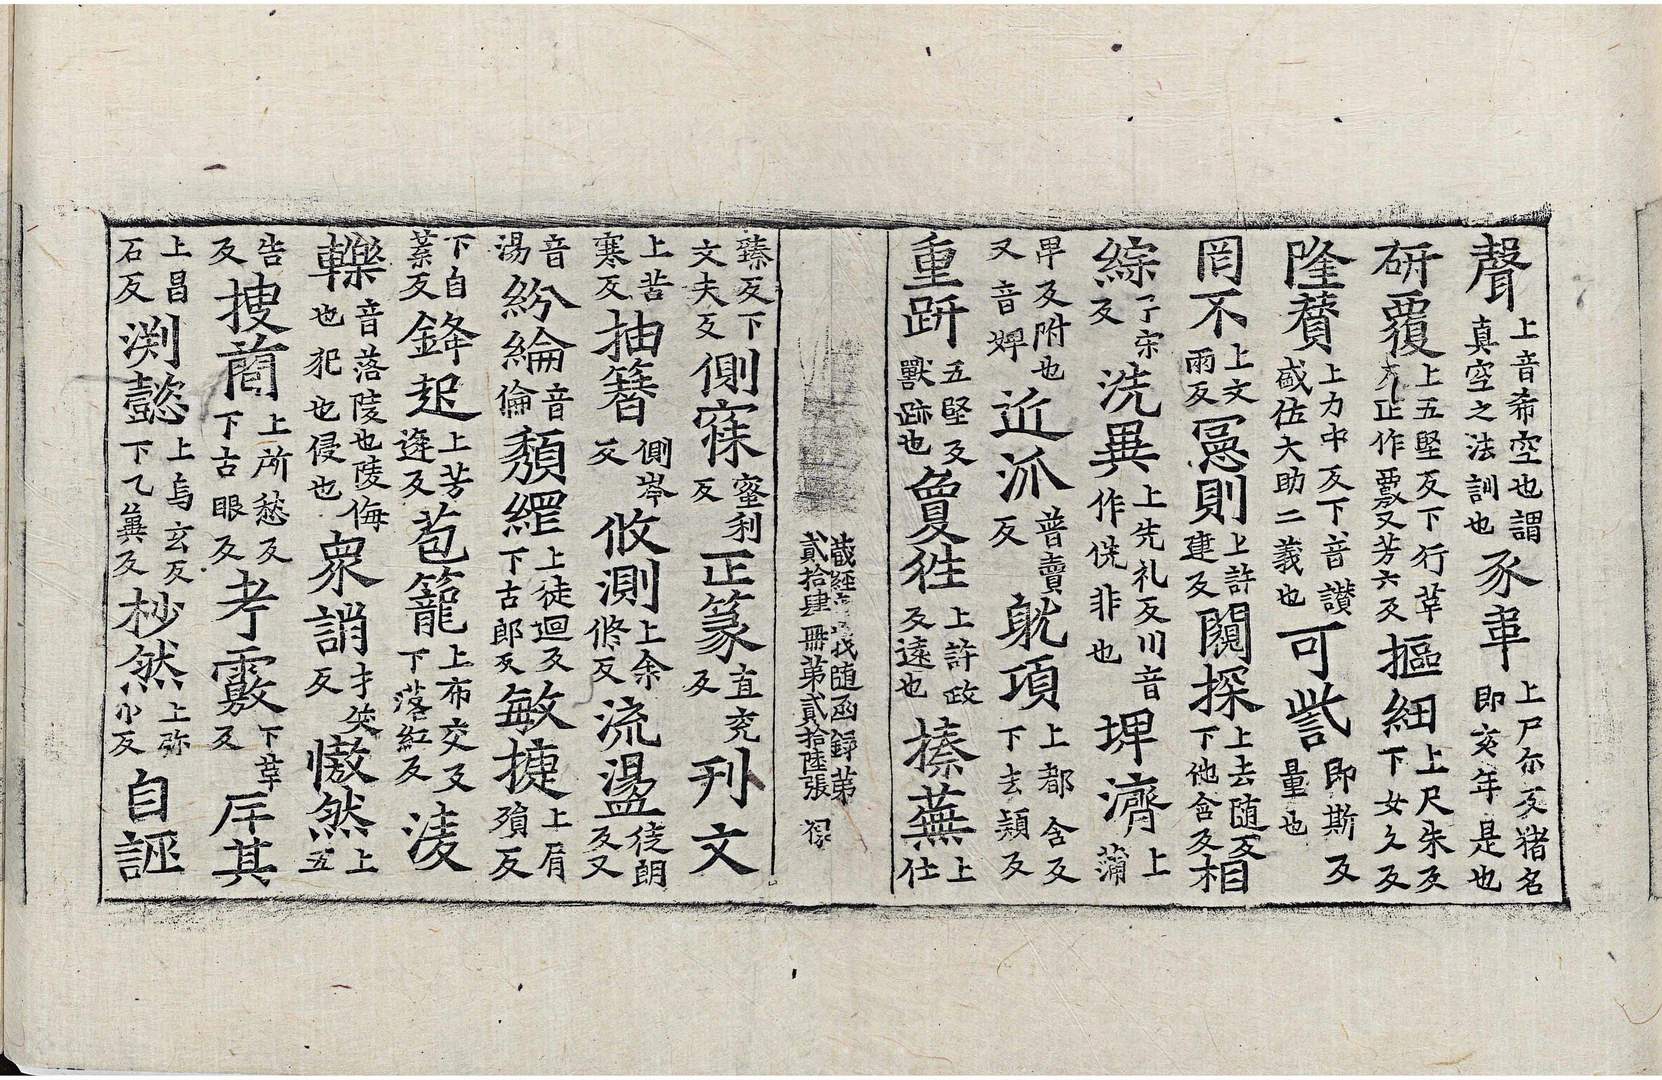 聲上音希空也謂真空之法訓也豕軰上尸尒反猪名即亥年是也
研覆上五堅反下行莑反正作覈又芳六反摳細上尺朱反下女久反
隆賛上力中反下音讃盛佐大助二義也可訾即斯反量也
罔不上文兩反㥶則上許建反闚探上去随反下他含反相
綜了宋反洗異上先礼反川音作侊非也埤濟上蒲
卑反附也又音婢近派普賣反躭項上都含反下去穎反
重趼五堅反獸跡也敻徃上許政反遠也榛蕪上仕
藏經音義随函録第貳拾肆冊第貳拾陸張
臻反下文夫反側寐蜜利反正篆直兖反刋文
上苦寒反抽簮側岑反攸測上余修反流盪徒朗反又
音湯紛綸音倫頽䌉上徒迴反下古郎反敏捷上眉殞反
下自葉反鋒起上芳逢反苞籠上布交反下落紅反淩
轢音落陵也陵侮也犯也侵也衆誚才笑反慠然上五
告反搜蕳上所愁反下古眼反考覈下莑反斥其
上昌石反渕懿上烏玄反下乙兾反杪然上弥小反自誣